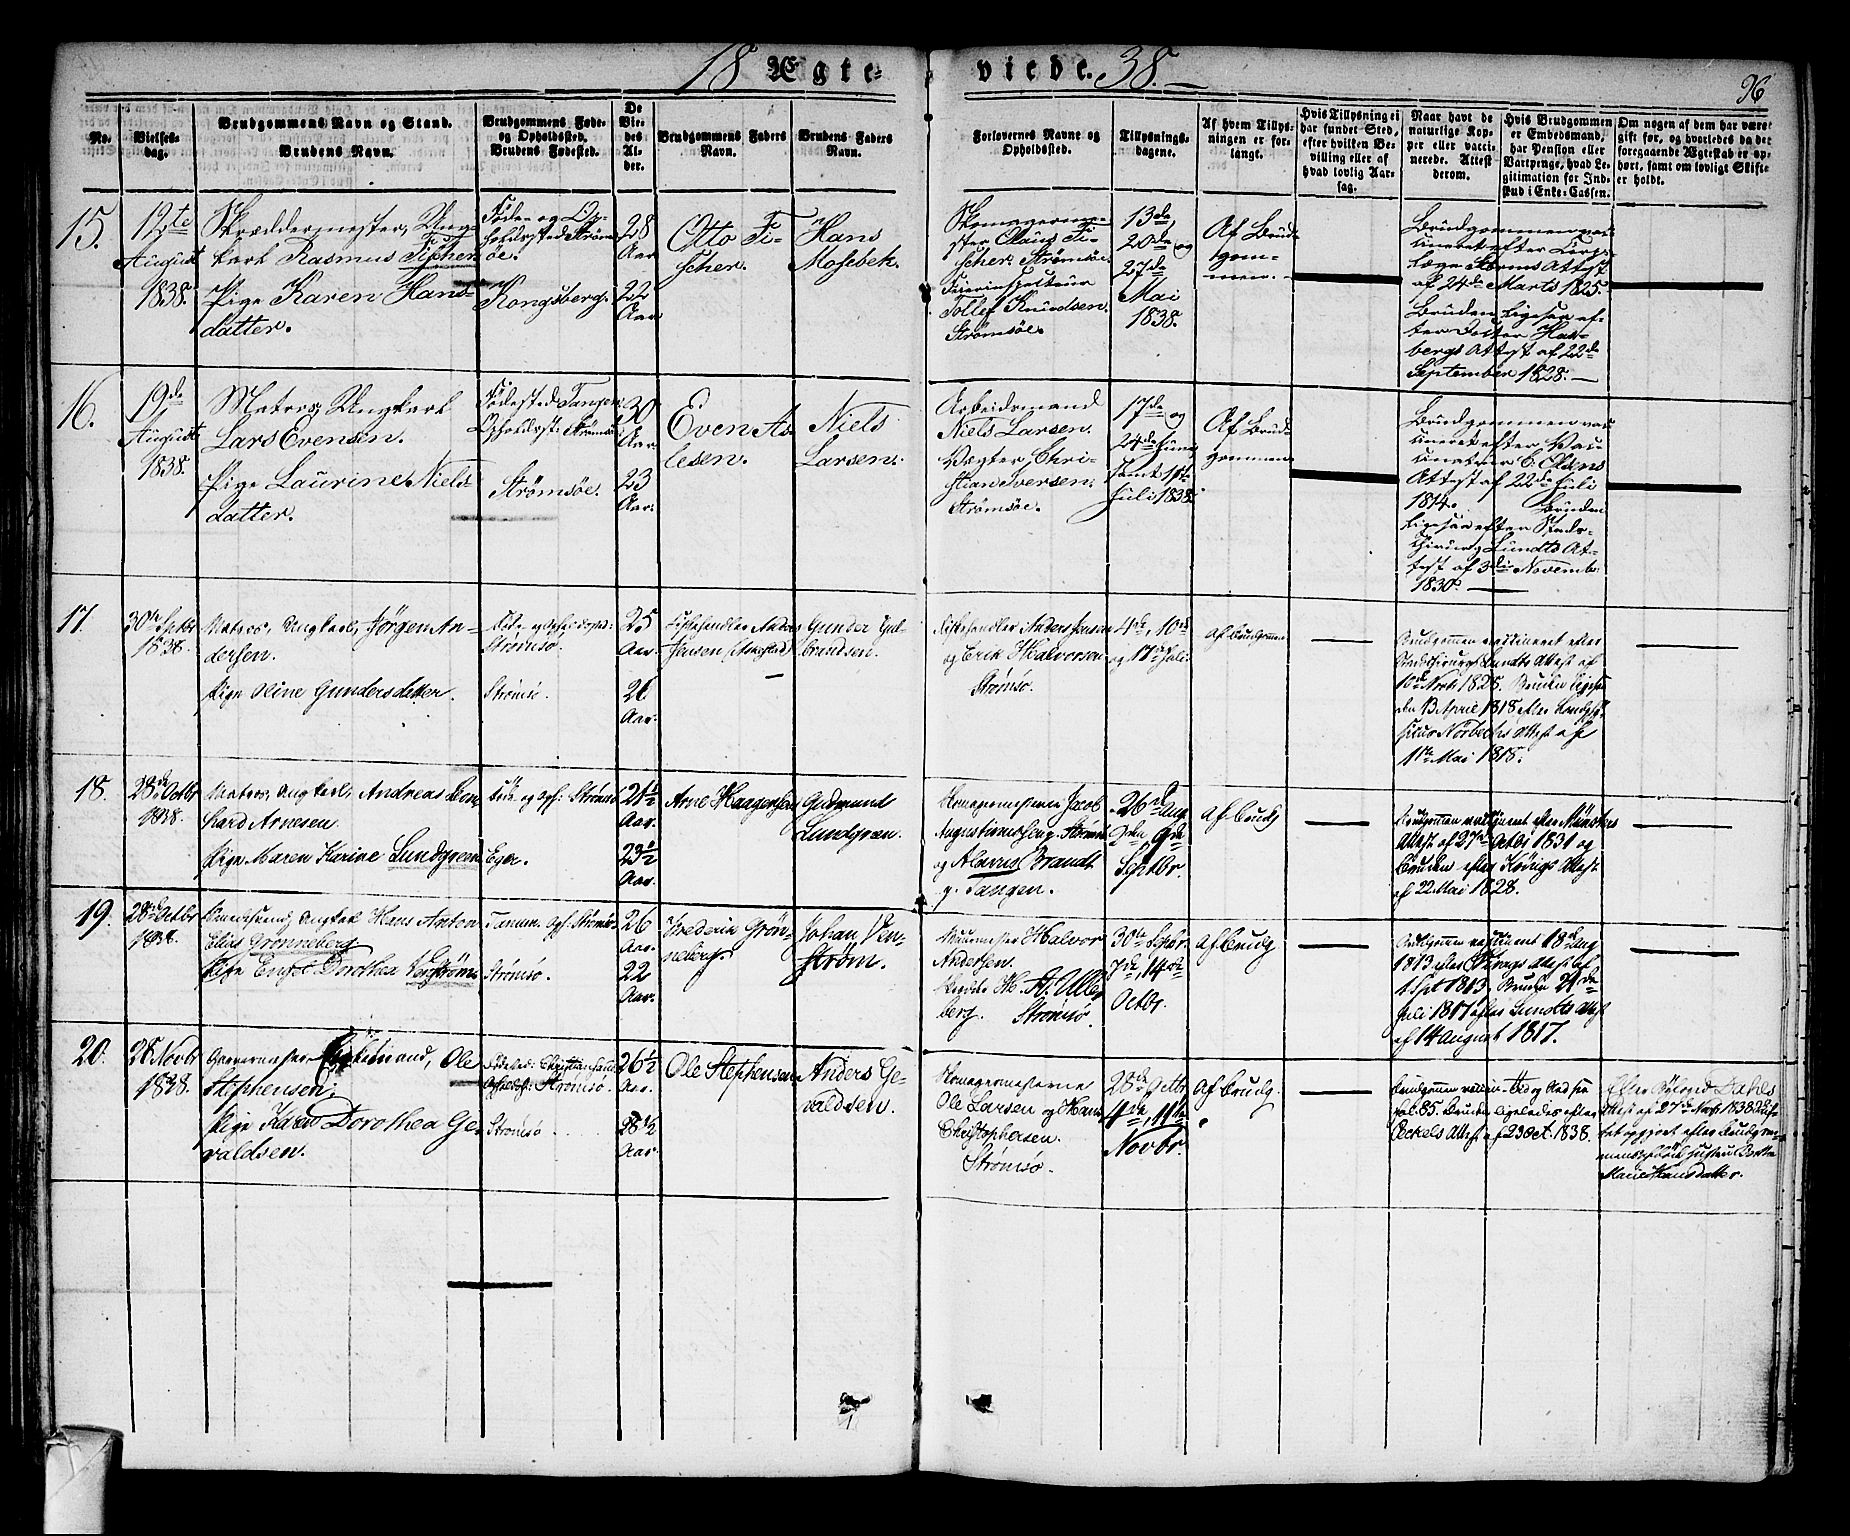 18 Ægte-viede. 38.
96
No.
Vielses-
dag.
Brudgommens Navn og Stand.
Brudens Navn.
Brudgommens Føde-
og Opholdssted.
Brudens Fødested.
De
Vie-
des
Al-
der.
Brudgommens Faders
Navn.
Brudens Faders
Navn.
Forlovernes Navne og
Opholdssted.
Tillysnings-
dagene.
Af hvem Tillys-
ningen er for-
langt.
Hvis Tillysning ei
har fundet Sted,
efter hvilken Be-
villing eller af
hvad lovlig Aar-
sag.
Naar havt de
naturlige Kop-
per eller vacci-
nerede. Attest
derom.
Hvis Brudgommen
er Embedsmand,
har Pension eller
Vartpenge, hvad Le-
gitimation for Ind-
skud i Enke-Cassen.
Om nogen af dem har været
gift før, og hvorledes da det
foregaaende Ægteskab er op-
hørt, samt om lovligt Skifte
er holdt.
15.
12te
August
1838.
Skræddermester, Ung-
karl Rasmus Fischer
Pige Karen Hans-
datter.
Føde- og Op-
holdssted Strøms-
øe.
Kongsberg.
28
Aar
22
Aar
Otto Fi-
scher.
Hans
Mosebek.
Skomagerme-
ster Olaus Fi-
scher. Strømsøe.
Feierinspekteur
Tollef Knudsen.
Strømsøe.
13de
20de og
27de
Mai
1838.
Af Brud-
gom-
men.
Brudgommen vac-
cineret efter Corps-
læge Storms Attest
af 24de Marts 1825.
Bruden ligesaa ef-
ter Doctor Has-
bergs Attest af 22de
September 1828.
16.
19de
August
1838.
Matros, Ungkarl
Lars Evensen.
Pige Laurine Niels-
datter.
Fødested Tangen
Opholdsst: Strømsøe
Strømsøe.
30
Aar.
23
Aar.
Even As-
lesen.
Niels
Larsen.
Arbeidsmand
Niels Larsen.
Vægter Chri-
stian Iversen.
Strømsøe.
17de og
24de Juni
samt 1ste
Juli 1838.
Af Brud-
gommen
Brudgommen vac-
cineret efter Vac-
cinatør C. Olsens
Attest af 22de Juli
1814.
Bruden
ligesaa efter Stads-
chirurg Lundts At-
test af 3die Novemb:
1830.
17.
30te Septbr
1838.
Matros, Ungkarl, Jørgen An-
dersen.
Pige Oline Gundersdatter.
Føde- og Opholdssted:
Strømsø.
Strømsø
25
Aar.
26
Aar.
Fiskehandler Anders
Jensen (Askestad)
Gunder Gul-
brandsen.
Fiskehandler Anders Jensen
og Erik Halvorsen
Strømsø.
4de, 10de
og 17de Juli.
Af Brudgommen
Brudgommen vaccineret efter
Stadschirurg Lundts Attest af
10de Novb 1828. Bruden ligesaa
den 13 April 1818 efter
Nørbechs Attest af
1ste Mai 1818.
18.
28de Octbr
1838.
Matros, Ungkarl, Andreas Bern-
hard Arnesen.
Pige Maren Karine Lundgreen
Føde og Oph: Strømsø
Eger.
21½
Aar.
23½
Aar.
Arne Haagensen
Gudmund
Lundgreen.
Skomagermesterne Jacob
Augustinussen Strømsø
og Alavus Brandt
p. Tangen.
26de Aug
2den 9de
Septbr.
Af Brudg
Brudgommen vaccineret efter Münsters
Attest af 27de Octbr 1831 og
Bruden efter Kønigs Attest
af 22 Mai 1828.
19.
28de Octbr
1838.
Ungkarl Hans Anton
Elias Grønneberg
Pige Engel Dorothea Venstrøm
Tanum. Oph: Strømsø
Strømsø.
26
Aar.
22
Aar.
Frederik Grøn-
neberg.
Johan Ven-
strøm.
Muurmester Halvor
Andersen.
H. A. Ulle-
berg. Strømsø
30te Septbr.
7de, 14de
Octbr.
Af Brudg
Brudgommen vaccineret 18de Aug
1813 efter Attest af
1 Sept 1813. Bruden 21de
Juli 1817 efter Lundts Attest
af 14 August 1817.
20.
28 Novbr
1838.
Garvermester, Enkemand, Ole
Stephensen.
Pige Karen Dorothea Ge-
valdsen.
Fødested: Christiansand
Opholdst: Strømsø.
Strømsø
26½
Aar.
28½
Aar.
Ole Stephensen
Anders Ge-
valdsen.
Skomagermesterne
Ole Larsen og Hans
Christophersen.
Strømsø.
28de Octbr
4de, 11te
Novbr.
Af Brudg.
Brudgommen
Fol. 85. Bruden ligeledes efter
Beckels Attest af 23 Oct. 1838.
Efter Dahls
Attest af 27de Novb 1838 Skif-
tet opgjort efter Brudgom-
mens Hustru
Marie Hansdatter.